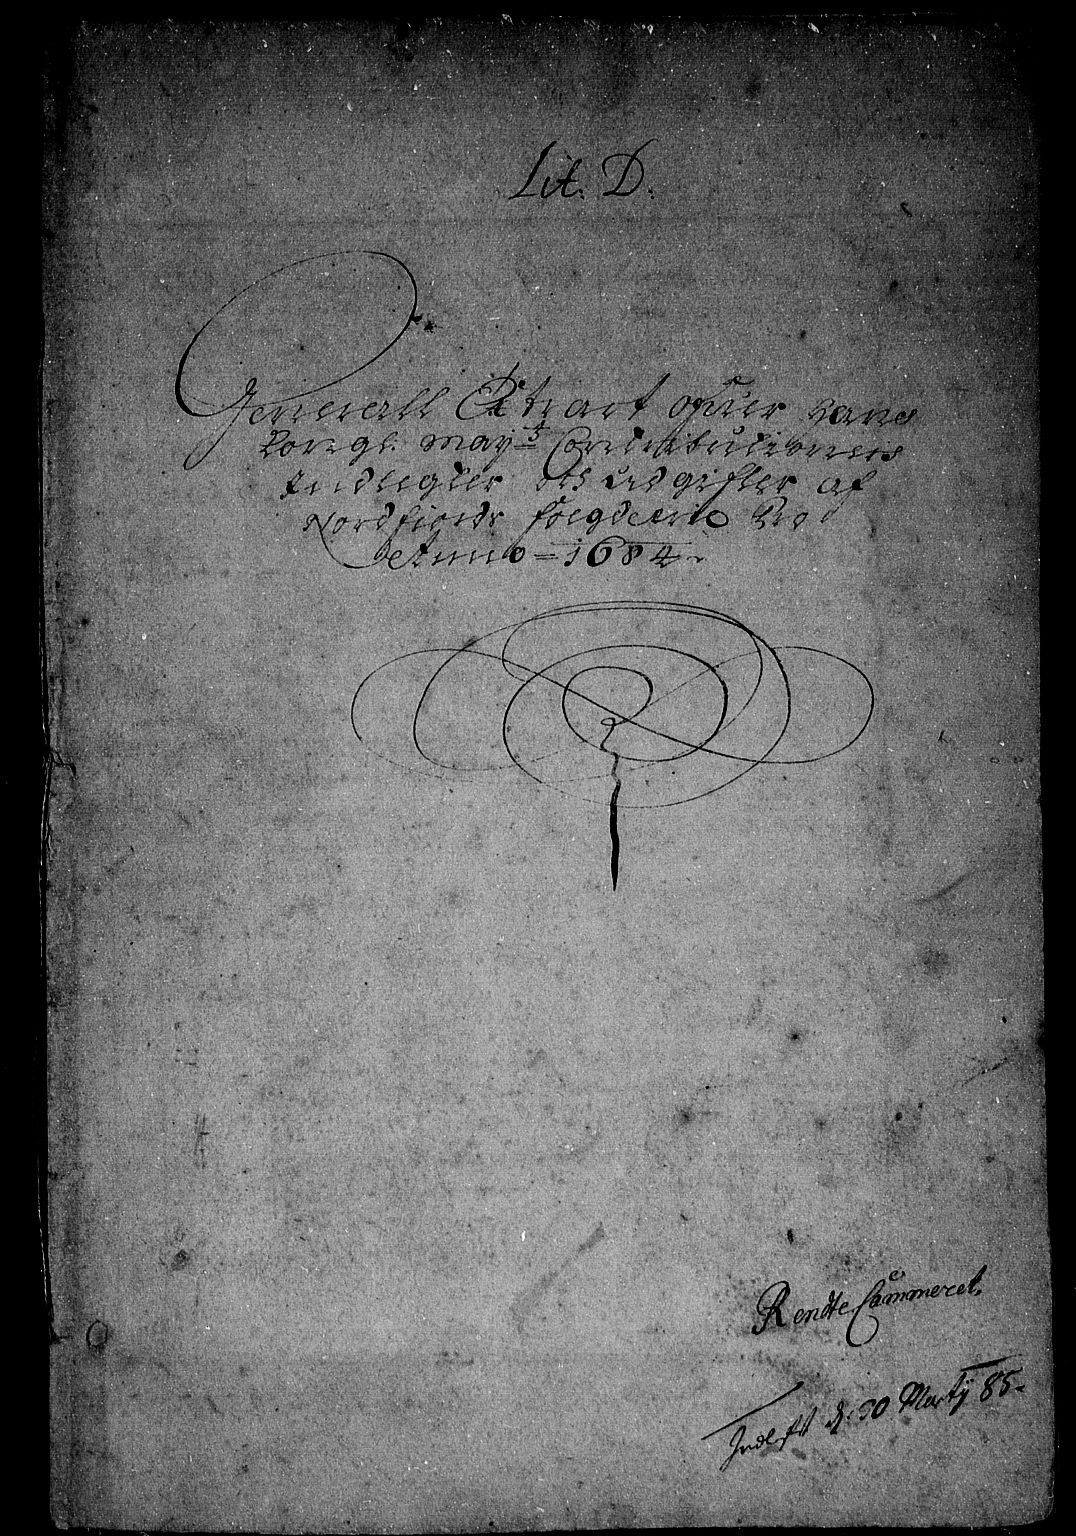 Lit. D.
Generall Extract ofuer Hans
Kongl. May:ts Contributioners
Indtegter och Udgifter af
Nordfiords foegderie Pro
Anno = 1684.
Rendte Cammeret.
Indleft d: 30 Martÿ 85.